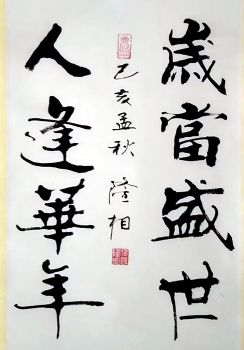 歲當盛世
人逢華年
己亥孟秋 隆相